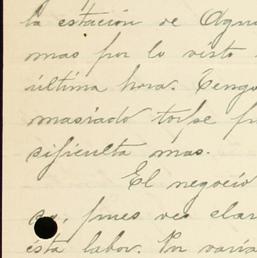 la estación de Agua
mas por lo visto
última hora. Tengo
masiado torpe
dificulta mas.
El negocio
pues ves clar
ésta labor. Por varia